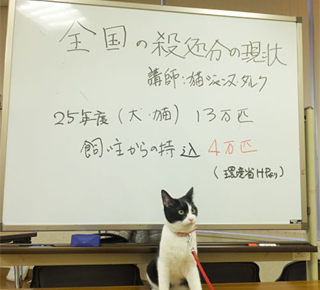 全国の殺処分の現状
講師:猫ジャンヌ・ダルク
25年度(犬・猫) 13万匹
飼い主からの持込 4万匹
(環境省HPより)